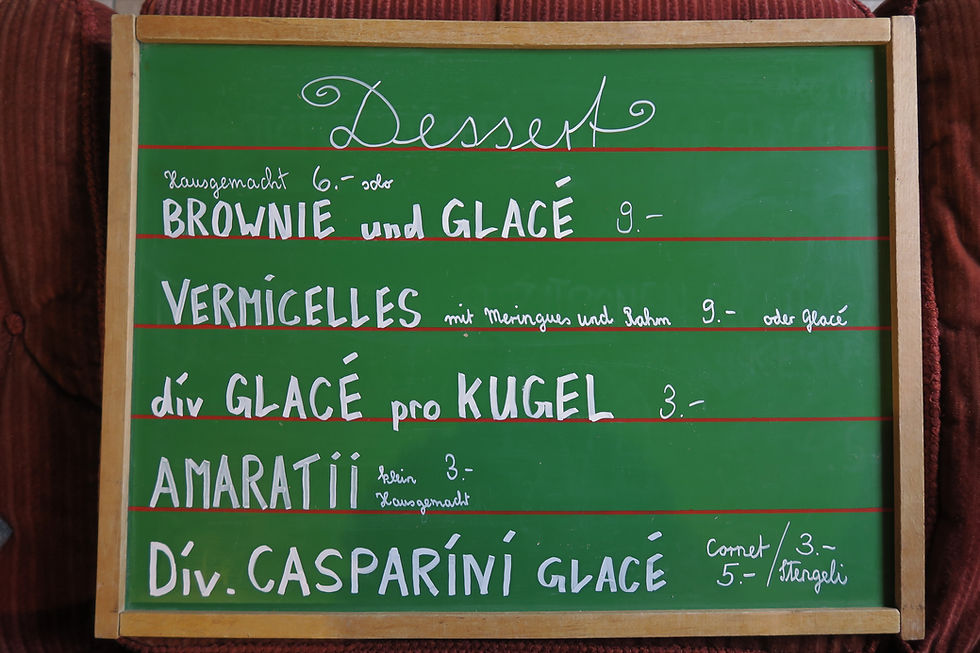 Dessert
Hausgemacht 6.- solo
BROWNIE und GLACÉ 9.-
VERMICELLES mit Meringues und Rahm 9.- oder Glacé
div GLACÉ pro KUGEL 3.-
AMARATII klein 3.-
Hausgemacht
Div. CASPARÍNÍ GLACÉ Cornet / 3.-
5.- / Stengeli